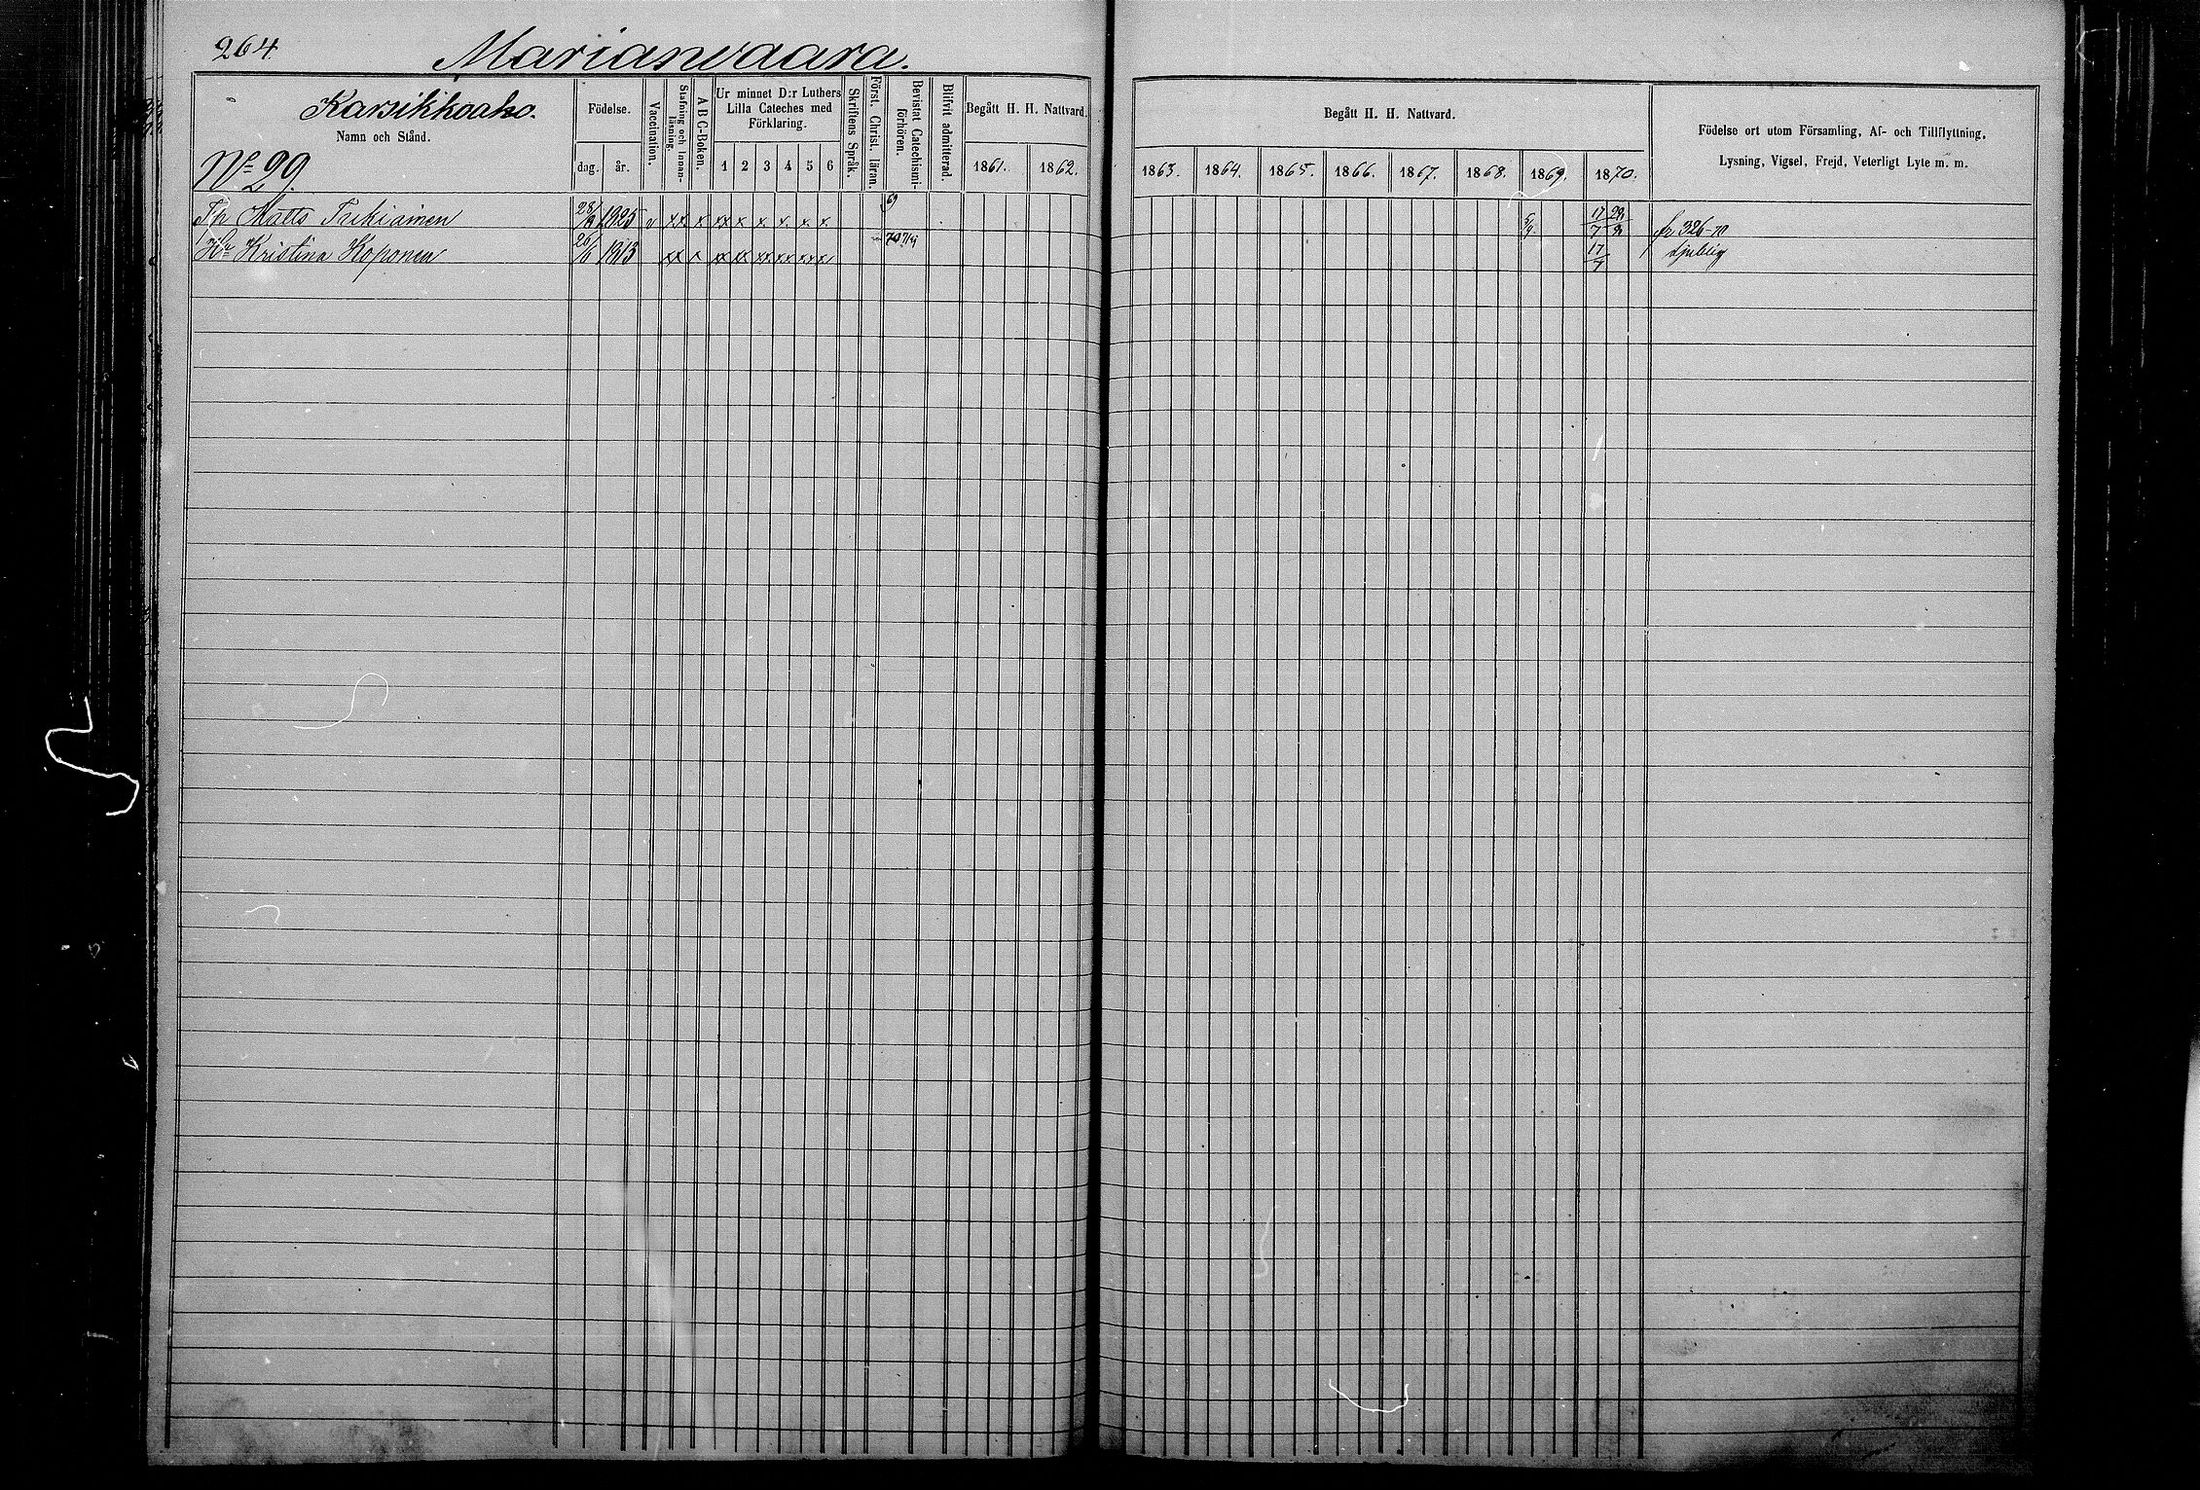 264
Marianvaara.
Karsikkoaho.
Namn och Stånd.
No 29.
Födelse.
dag. år.
Vaccination.
Stafning och Innan-läsning.
A B C-Boken.
Ur minnet D:r Luthers
Lilla Cateches med
Förklaring.
1 2 3 4 5 6
Skriftens Språk.
Först. Christ. läran.
Bevistat Catechismi-förhören.
Blifvit admitterad.
Begått H. H. Nattvard.
1861. 1862.
Begått H. H. Nattvard.
1863. 1864. 1865. 1866. 1867. 1868. 1869. 1870.
Födelse ort utom Församling, Af- och Tillflyttning,
Lysning, Vigsel, Frejd, Veterligt Lyte m. m.
Matts Tukiainen 1825 v xx x xx x x x x x 69 17/7 fr 326-70
Hu Kristina Koponen 1813 xx x xx xx xx xx xx xx 70 17/7 sjuklig